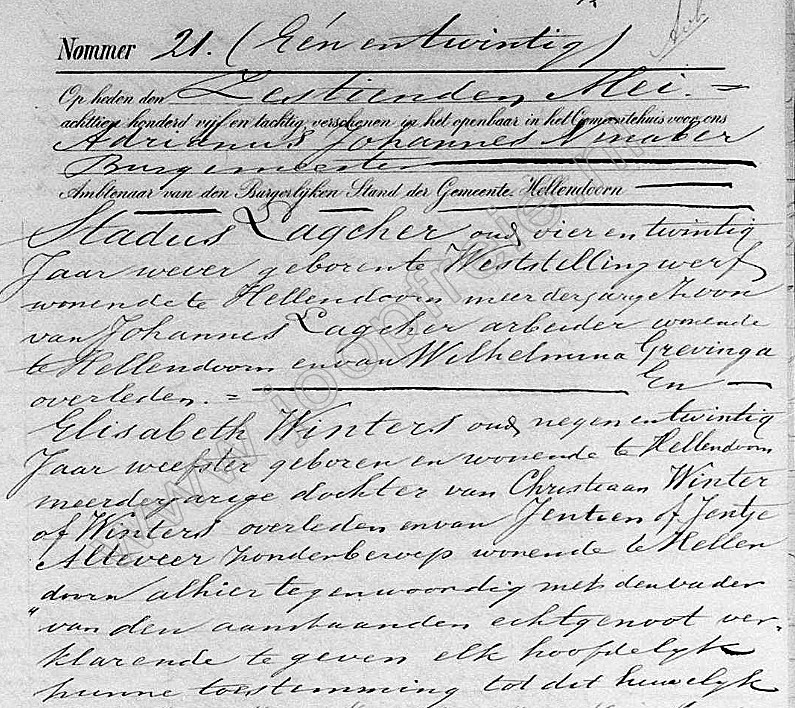 Nommer 21. (Eén en twintig)
Op heden den Zestienden Mei. =
achttien honderd vijf en tachtig, verschenen in het openbaar in het Gemeentehuis voor ons
Adrianus Johannes
Burgemeester
Ambtenaar van den Burgerlijken Stand der Gemeente Hellendoorn
Stadus Lagcher oud vier en twintig
Jaar wever geboren te Weststellingwerf
wonende te Hellendoorn meerderjarige zoon
van Johannes Lagcher arbeider wonende
te Hellendoorn en van Wilhelmina Grevinga
overleden. = En
Elisabeth Winters oud negen en twintig
Jaar weefster geboren en wonende te Hellendoorn
meerderjarige dochter van Christiaan Winter
of Winters overleden en van Jentien of Jentje
Alteveer zonder beroep wonende te Hellen
doorn alhier tegenwoordig met den vader
"van den aanstaanden echtgenoot ver-
klarende te geven elk hoofdelyk
hunne toestemming tot dit huwelyk
www.jooptreie.nl